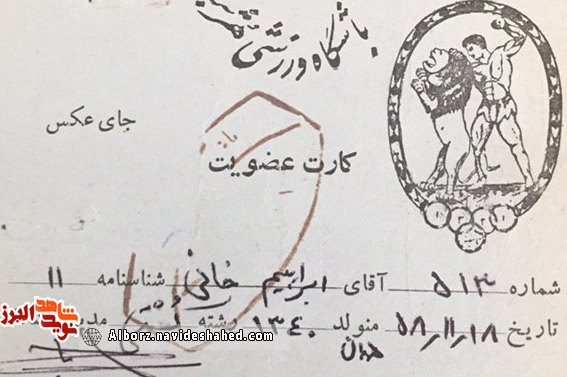 باشگاه ورزشی
جای عکس
کارت عضویت
شماره ۵۱۳ آقای ابراهیم خانی شناسنامه ۱۱
تاریخ ۵۸/۱۱/۱۸ متولد ۱۳۴۰ رشته
نوید شاهد البرز
Alborz.navideshahed.com